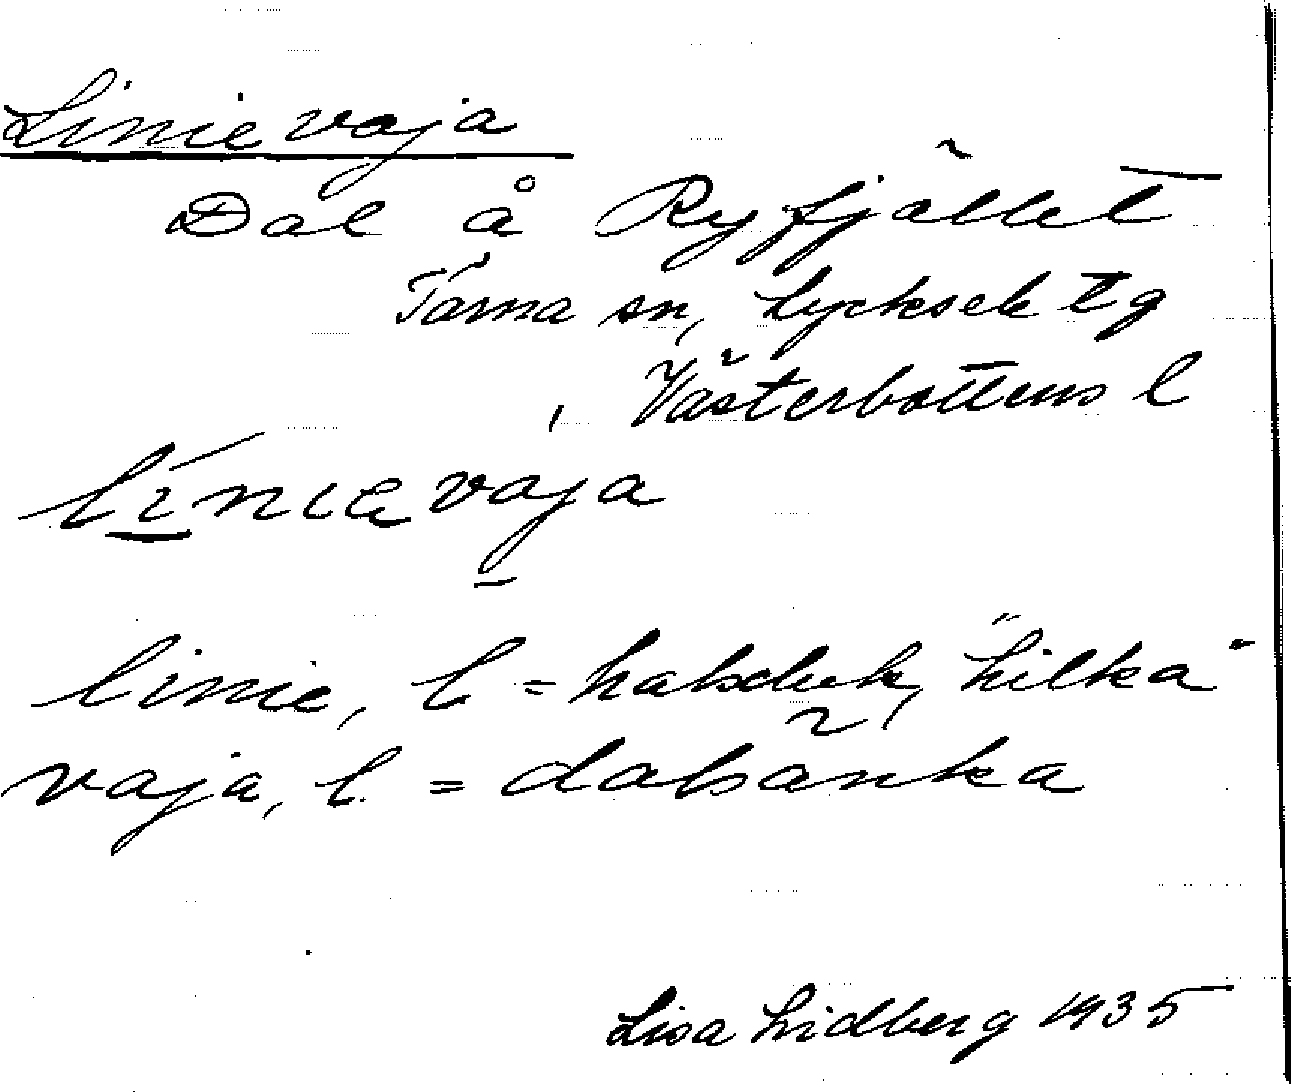 Linievaja
Dal å Ryfjället
Tärna sn, Lycksele tg
Västerbottens l
línievaja
linie, l = halsduk, "hilka"
vaja, l = dalsänka
Lisa Lidberg 1935